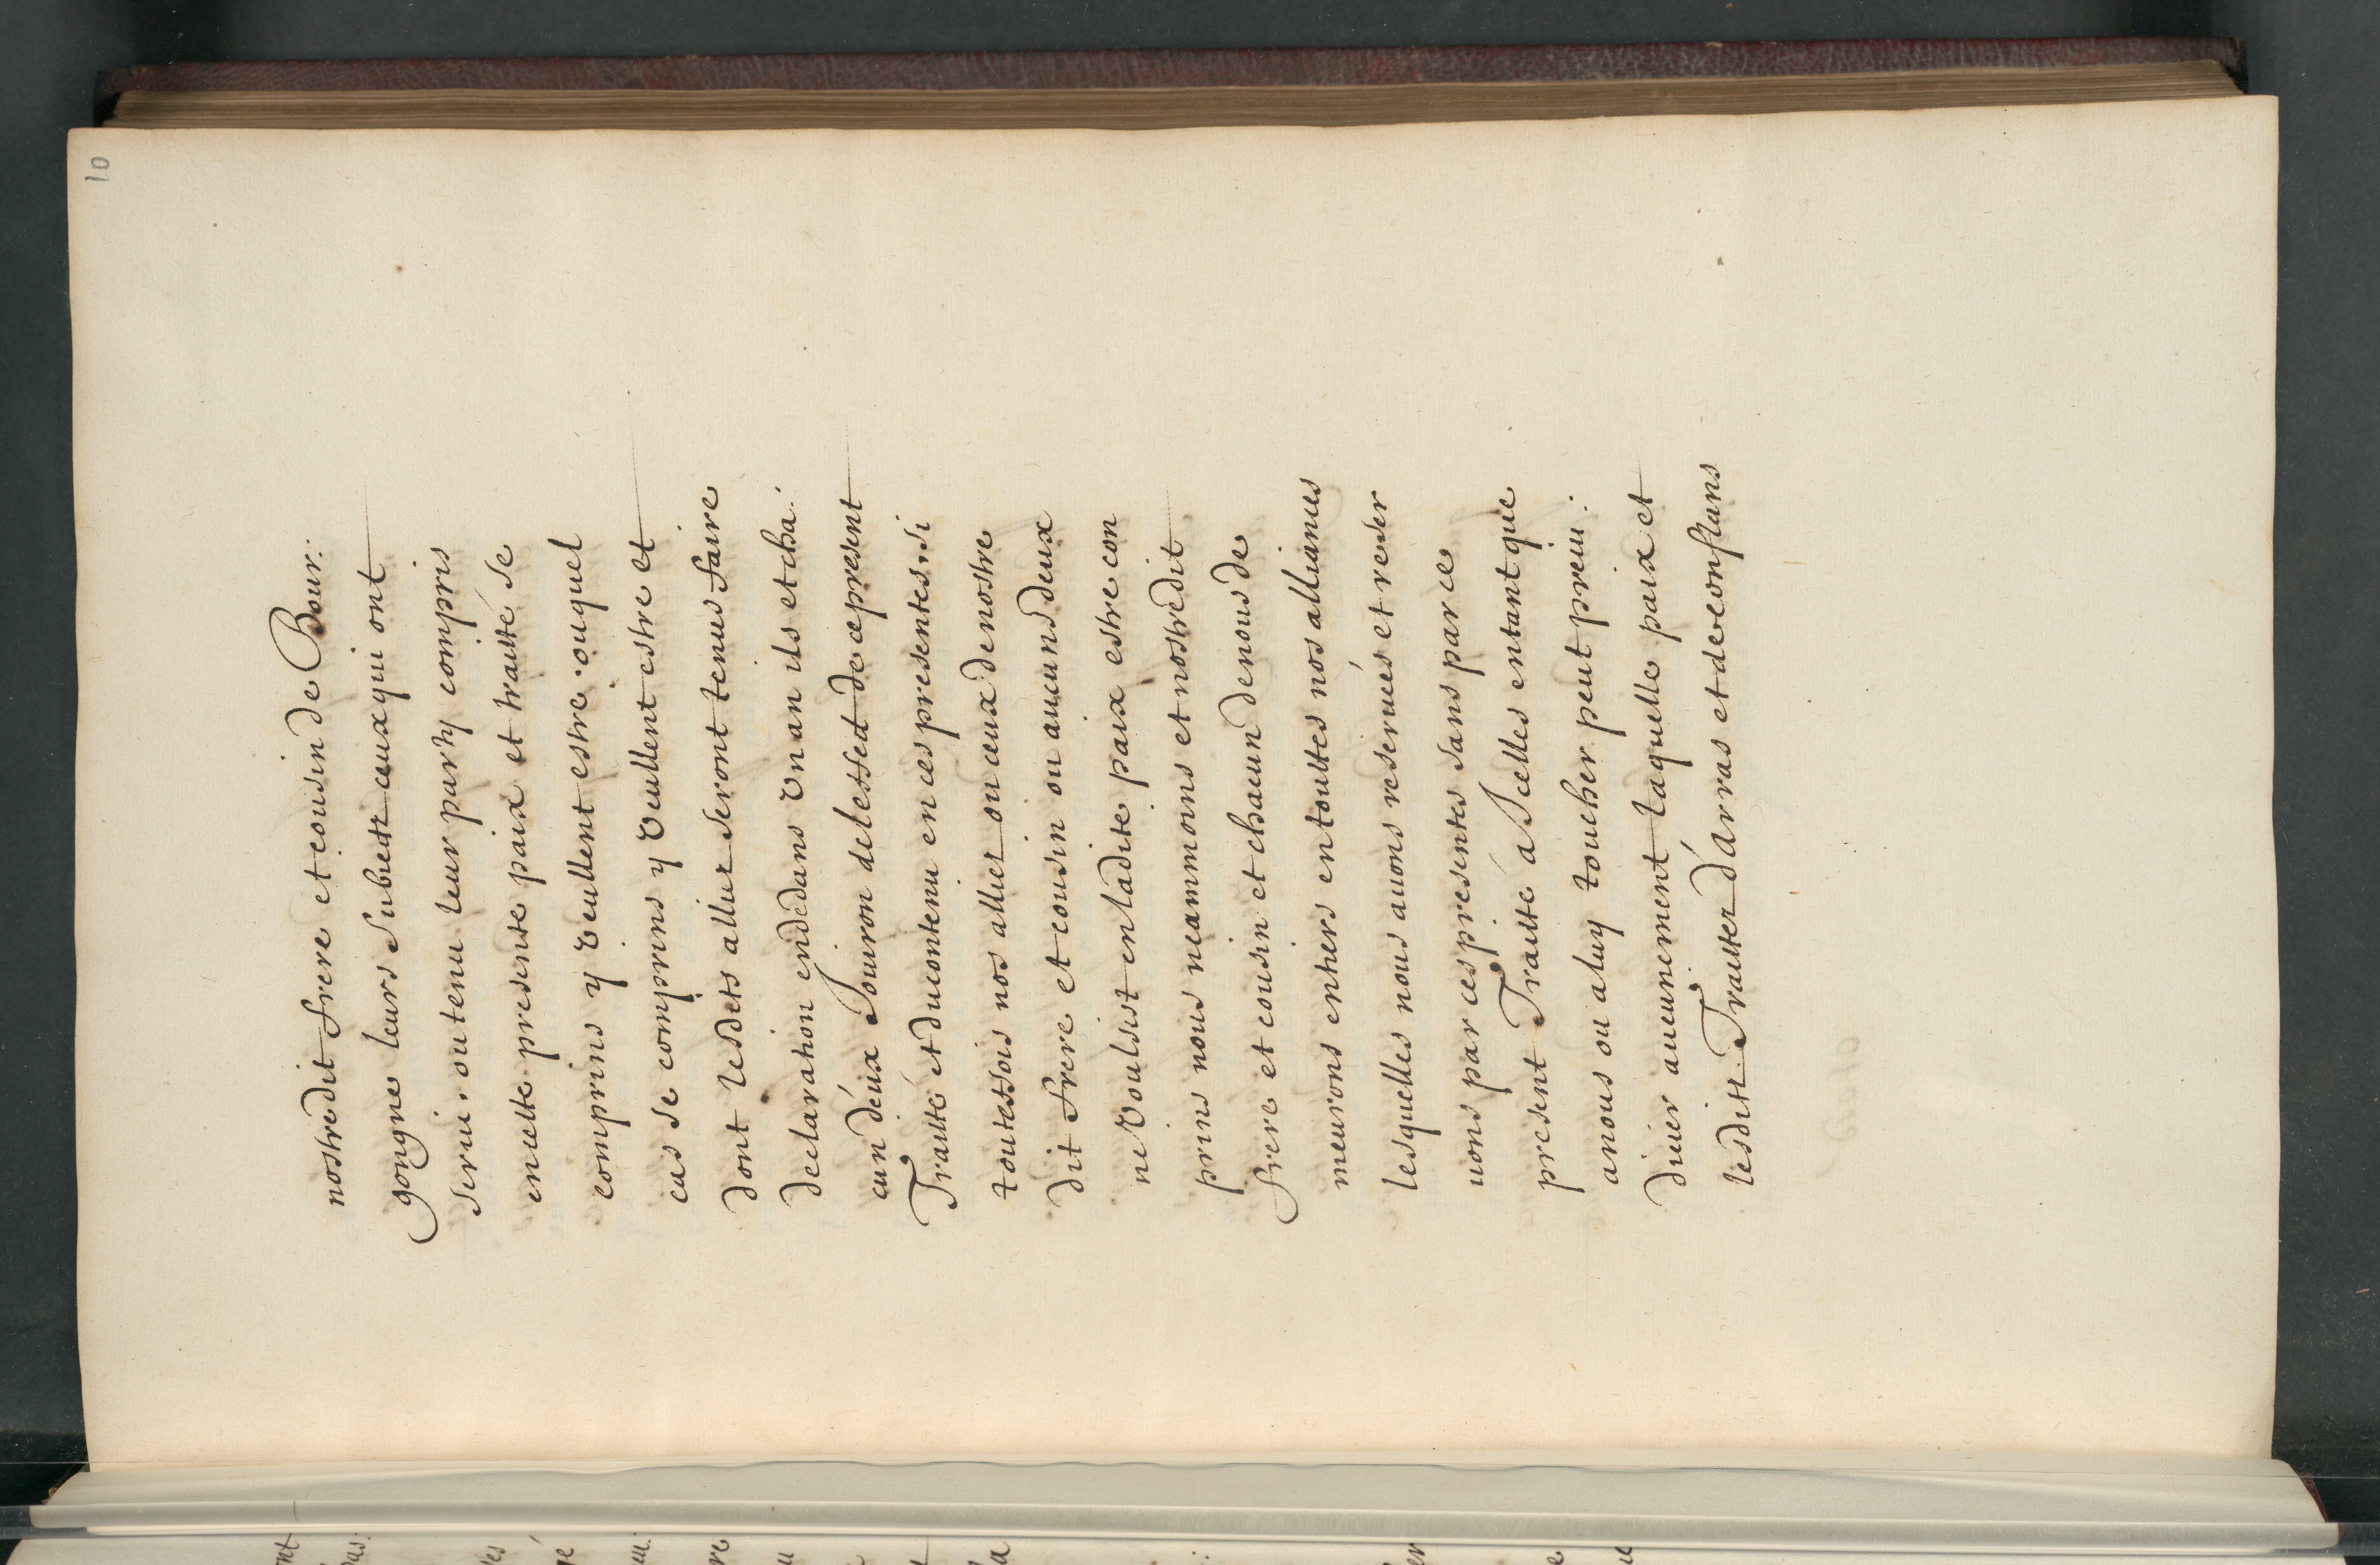 10
nostredit frere et cousin de Bour:
gongne leurs subietz ceux qui ont
serui, ou tenu leur party compris
en icelle presente paix et traitté se
comprins y veullent estre. ouquel
cas se comprins y veullent estre et
dont lesdits alliez seront tenus faire
declaration en dedans vn an ils et cha:
cun deux Jouiron de leffect de ce present
Traitté et du contenu en ces presentes, si
toutesfois nos alliez ou ceux de nostre
dit frere et cousin ou aucuns deux
ne voulsist en ladite paix estre con
prins nous neanmoins et nostredit
frere et cousin et chacun de nous de
meurons entiers en touttes nos alliances
lesquelles nous auons reseruées et reser
uons par ces presentes sans par ce
present Traitté a Jcelles en tant que
a nous ou a luy toucher peut preiu:
dicier aucunement laquelle paix et
lesditz Traitez d'arras et de conflans